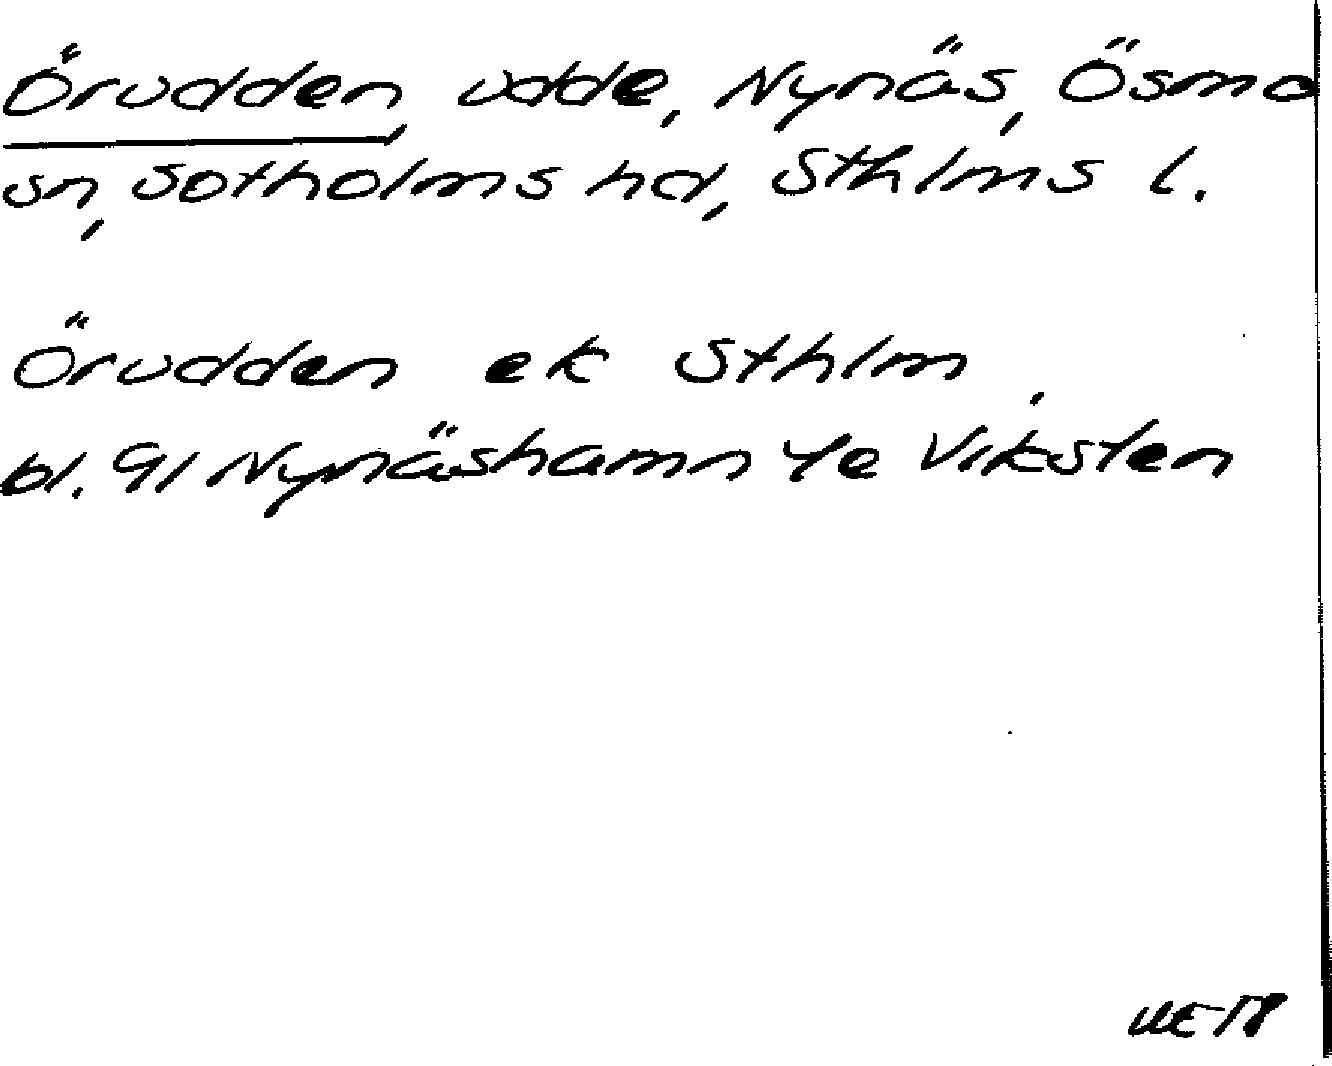 Örudden, udde, Nynäs, Ösmo
sn, Sotholms hd, Sthlms l.
Örudden ek Sthlm
bl. 91 Nynäshamn 4e Viksten